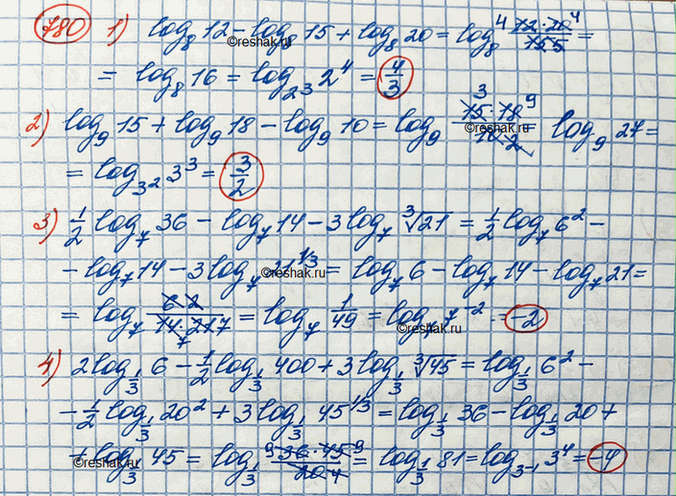 780 1) log₈ 12 - log₈ 15 + log₈ 20 = log₈ (12·20)/15 =
= log₈ 16 = log_{2³} 2⁴ = 4/3
2) log₉ 15 + log₉ 18 - log₉ 10 = log₉ (15·18)/10 = log₉ 27 =
= log_{3²} 3³ = 3/2
3) 1/2 log₇ 36 - log₇ 14 - 3 log₇ ∛21 = 1/2 log₇ 6² -
- log₇ 14 - 3 log₇ 21^{1/3} = log₇ 6 - log₇ 14 - log₇ 21 =
= log₇ 6/(14·21) = log₇ 1/49 = log₇ 7⁻² = -2
4) 2 log_{1/3} 6 - 1/2 log_{1/3} 400 + 3 log_{1/3} ∛45 = log_{1/3} 6² -
- 1/2 log_{1/3} 20² + 3 log_{1/3} 45^{1/3} = log_{1/3} 36 - log_{1/3} 20 +
+ log_{1/3} 45 = log_{1/3} (36·45)/20 = log_{1/3} 81 = log_{3⁻¹} 3⁴ = -4
©reshak.ru
©reshak.ru
©reshak.ru
©reshak.ru
©reshak.ru